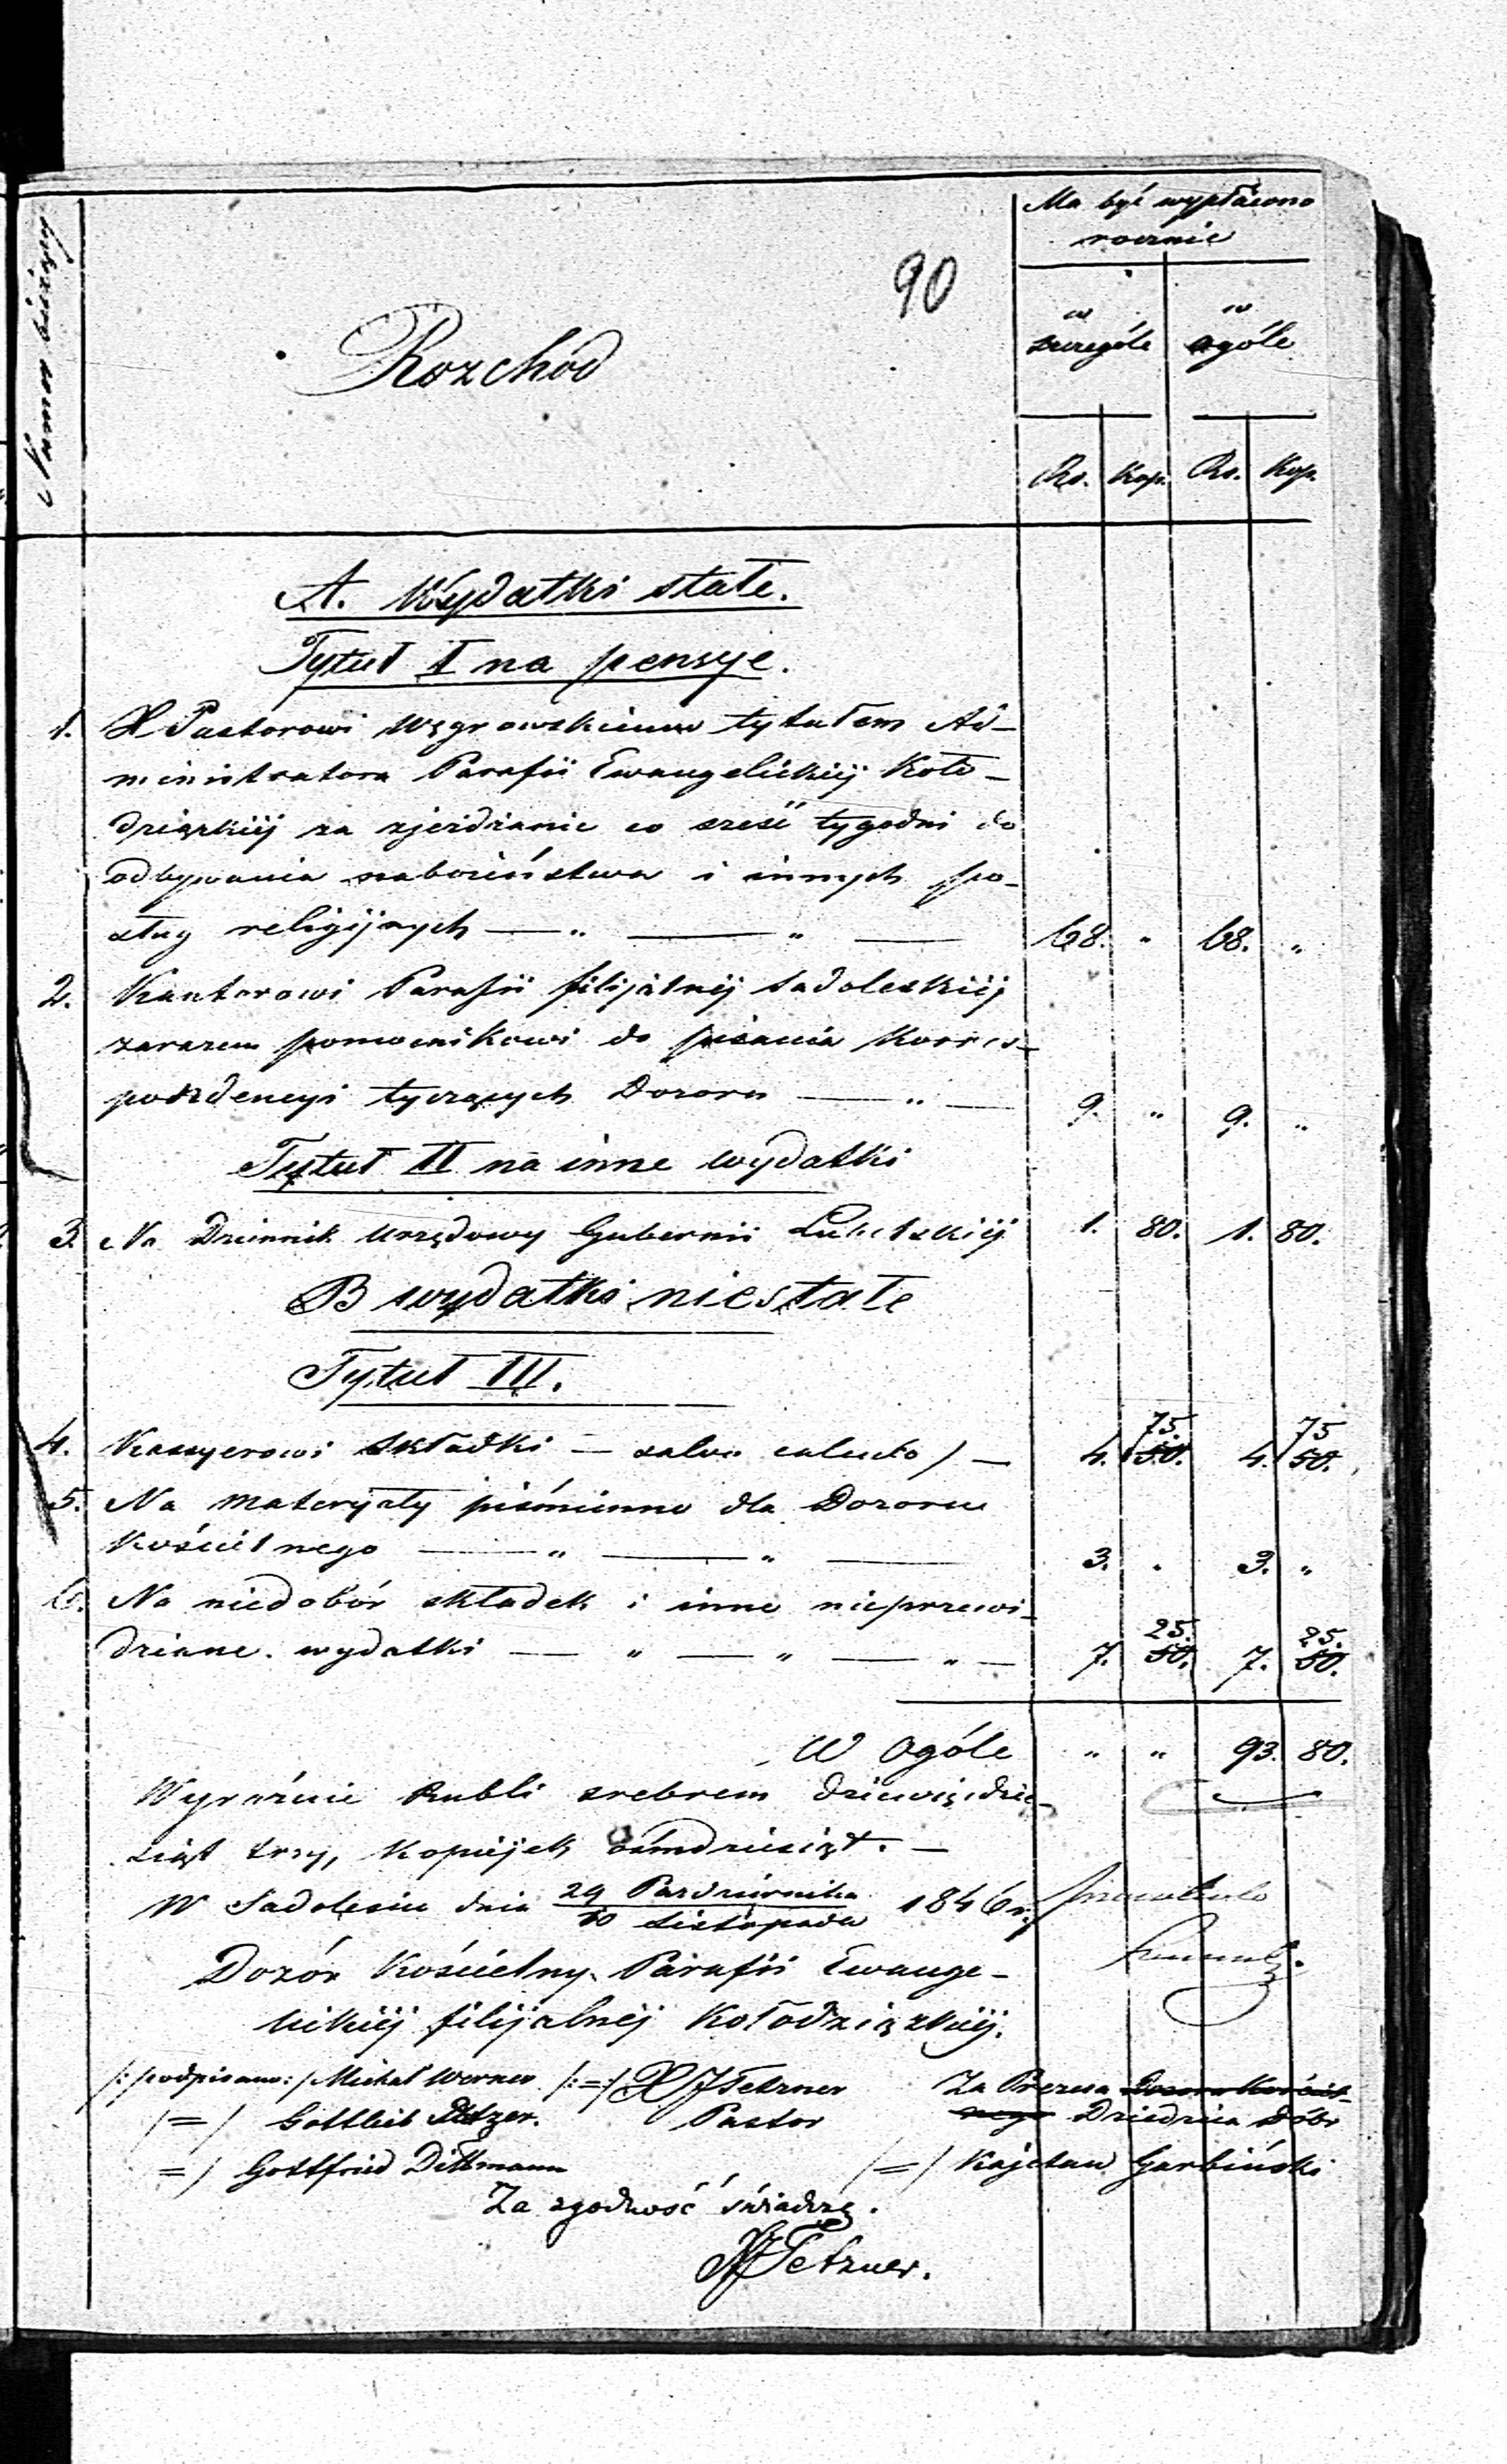 Ma być wypłacono
rocznie
90
w w
szczególe ogóle
Rozchód
Rs. Kop. Rs. Kop.
A. Wydatki stałe.
Tytuł I na pensye.
1. X Pastorowi Węgrowskiemu tytułem Ad-
ministratora Parafii Ewangelickiéj Koło-
dziąskiéj za zjeżdżanie co sześć tygodni do
odbywania nabożeństwa i innych po-
sług religijnych — „ — „ — 68. „ 68. „
2. Kantorowi Parafii filijalnéj Sadoleskiéj
zarazem pomocnikowi do pisania Korres-
pondencyi tyczących Dozoru — „ — 9. „ 9. „
Tytuł II na inne wydatki
3. Na Dziennik Urzędowy Gubernii Lubelskiéj 1. 80. 1. 80.
B wydatki niestałe
Tytuł III.
75. 75
4. Kassyerowi składki — salvo calculo /— 4. 50. 4. 50.
5. Na materyały piśmienne dla Dozoru
Kościelnego — „ — „ — 3. „ 3. „
6. Na niedobór składek i inne nieprzewi-
25. 25.
dziane wydatki — „ — „ — „ — 7. 50. 7. 50.
W Ogóle „ „ 93. 80.
Wyraźnie Rubli srebrem dziewięćdzie-
siąt trzy, Kopiejek ośmdziesiąt. —
W Sadolesiu dnia 29 Października / 10 Listopada 1846 r.
Dozór Kościelny Parafii Ewange-
lickiéj filijalnéj Kołodziązkiéj.
/: podpisano: / Michał Werner /:=:/ X J Tetzner Za Prezesa Dozoru Kościel-
/=/ Gottlieb Pletzer. Pastor nego Dziedzica Dóbr
=/ Gottfried Dittmann /=/ Kajetan Garbiński
Za zgodność świadczę.
X J Tetzner.